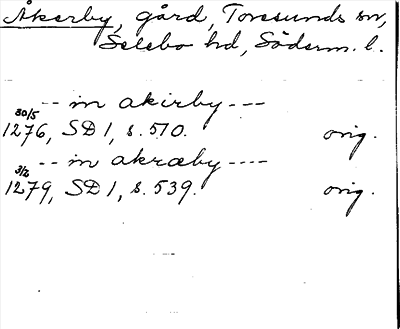 Åkerby, gård, Toresunds sn,
Selebo hd, Söderm. l.
-- in akirby ---
30/5
1276, SD 1, s. 510. orig.
-- in akræby ----
3/2
1279, SD 1, s. 539. orig.